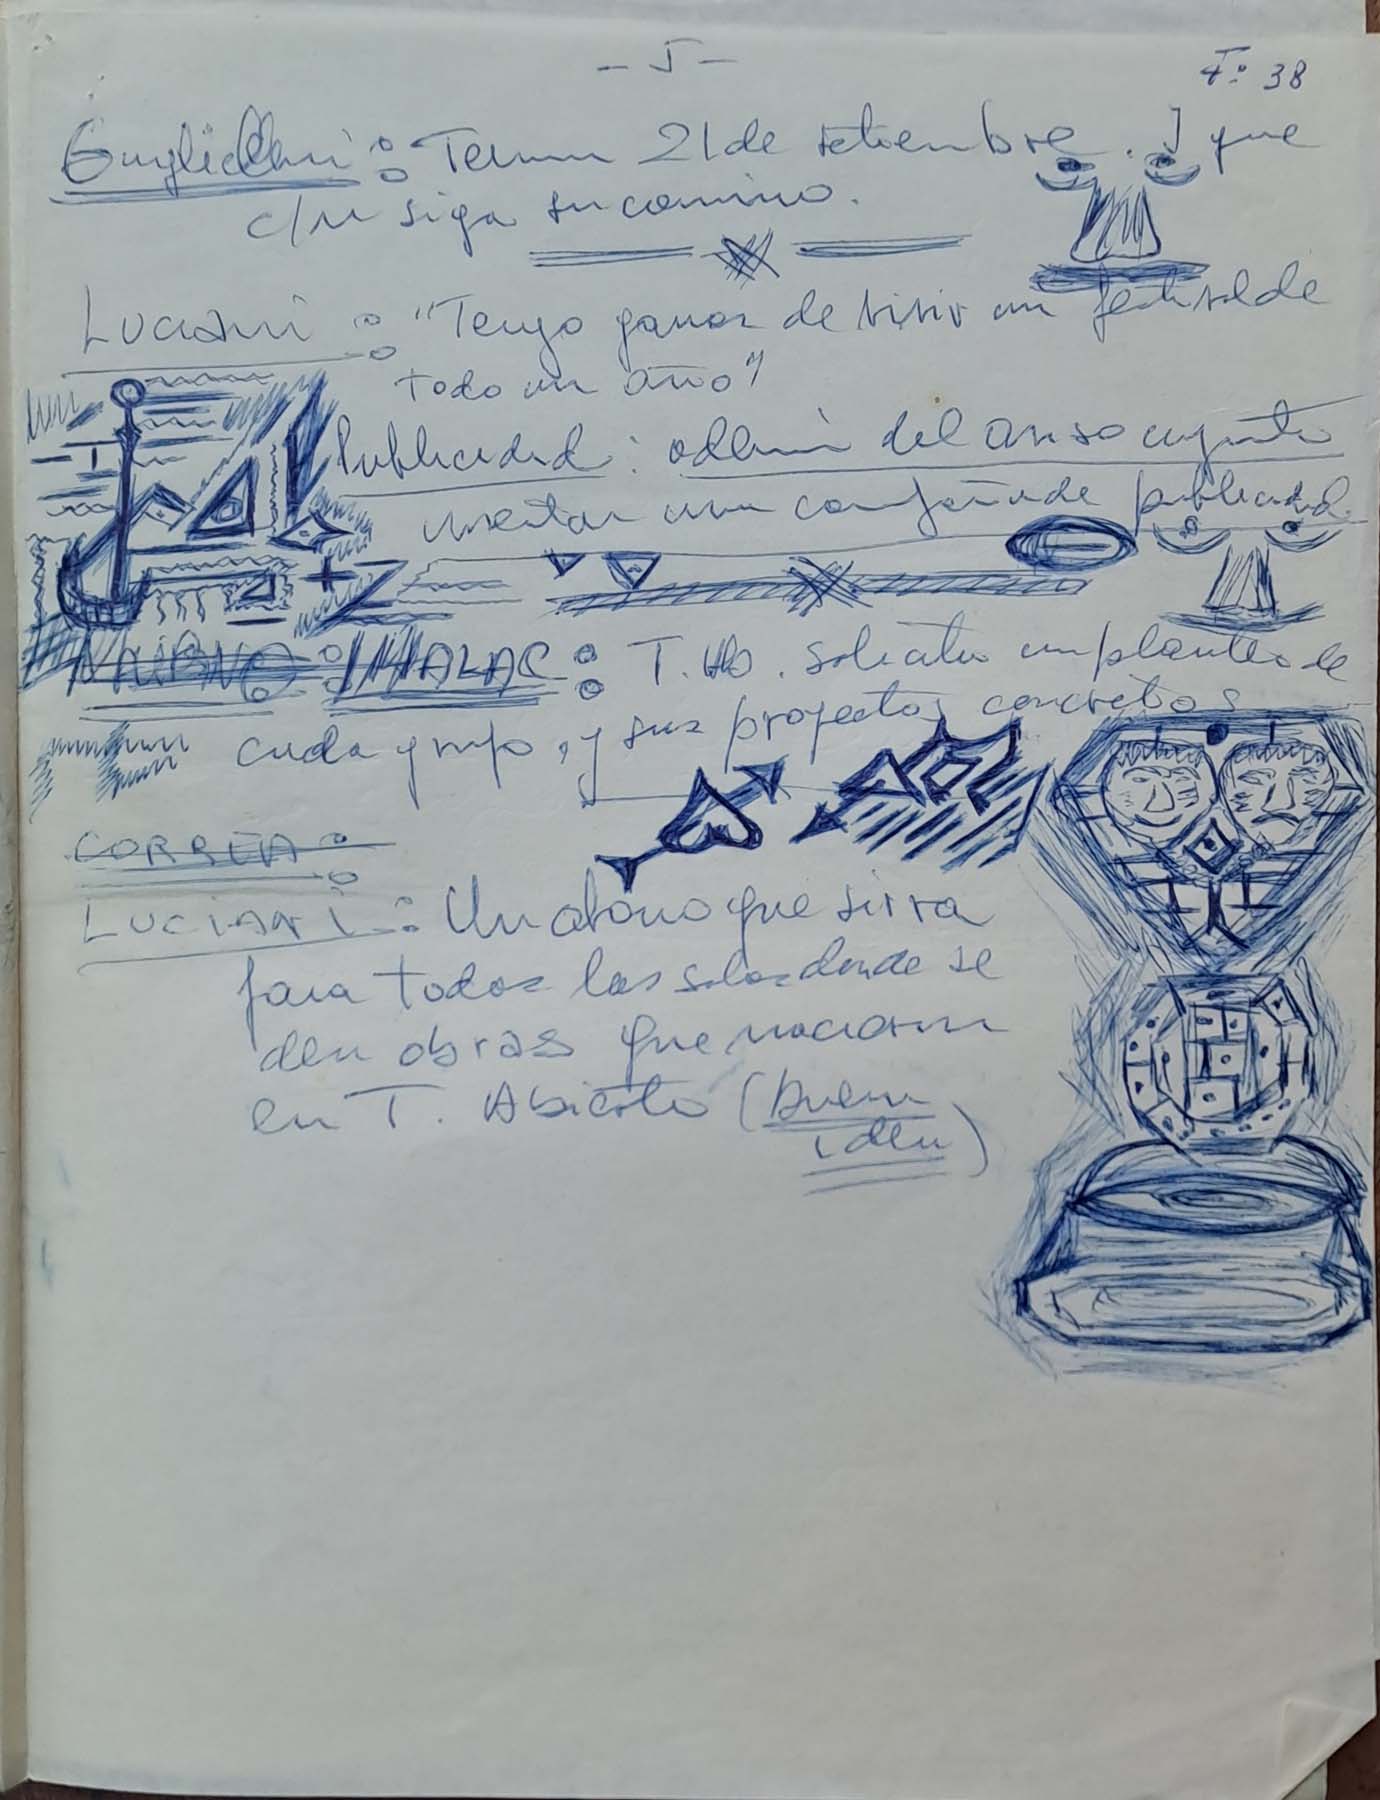 - 5 -
Fº 38
Guglielmi: Termin 21 de setiembre. Y que
c/u siga su camino.
Luciani: "Tengo ganas de vivir un festival de
todo un año"
Publicidad: además del aviso conjunto
insertar una campaña de publicidad.
HALAC: T. Ab. solicita un planteo de
cada grupo, y sus proyectos concretos
CORREA:
LUCIANI: Un abono que sirva
para todas las salas donde se
den obras que nacieron
en T. Abierto (Buena
idea)